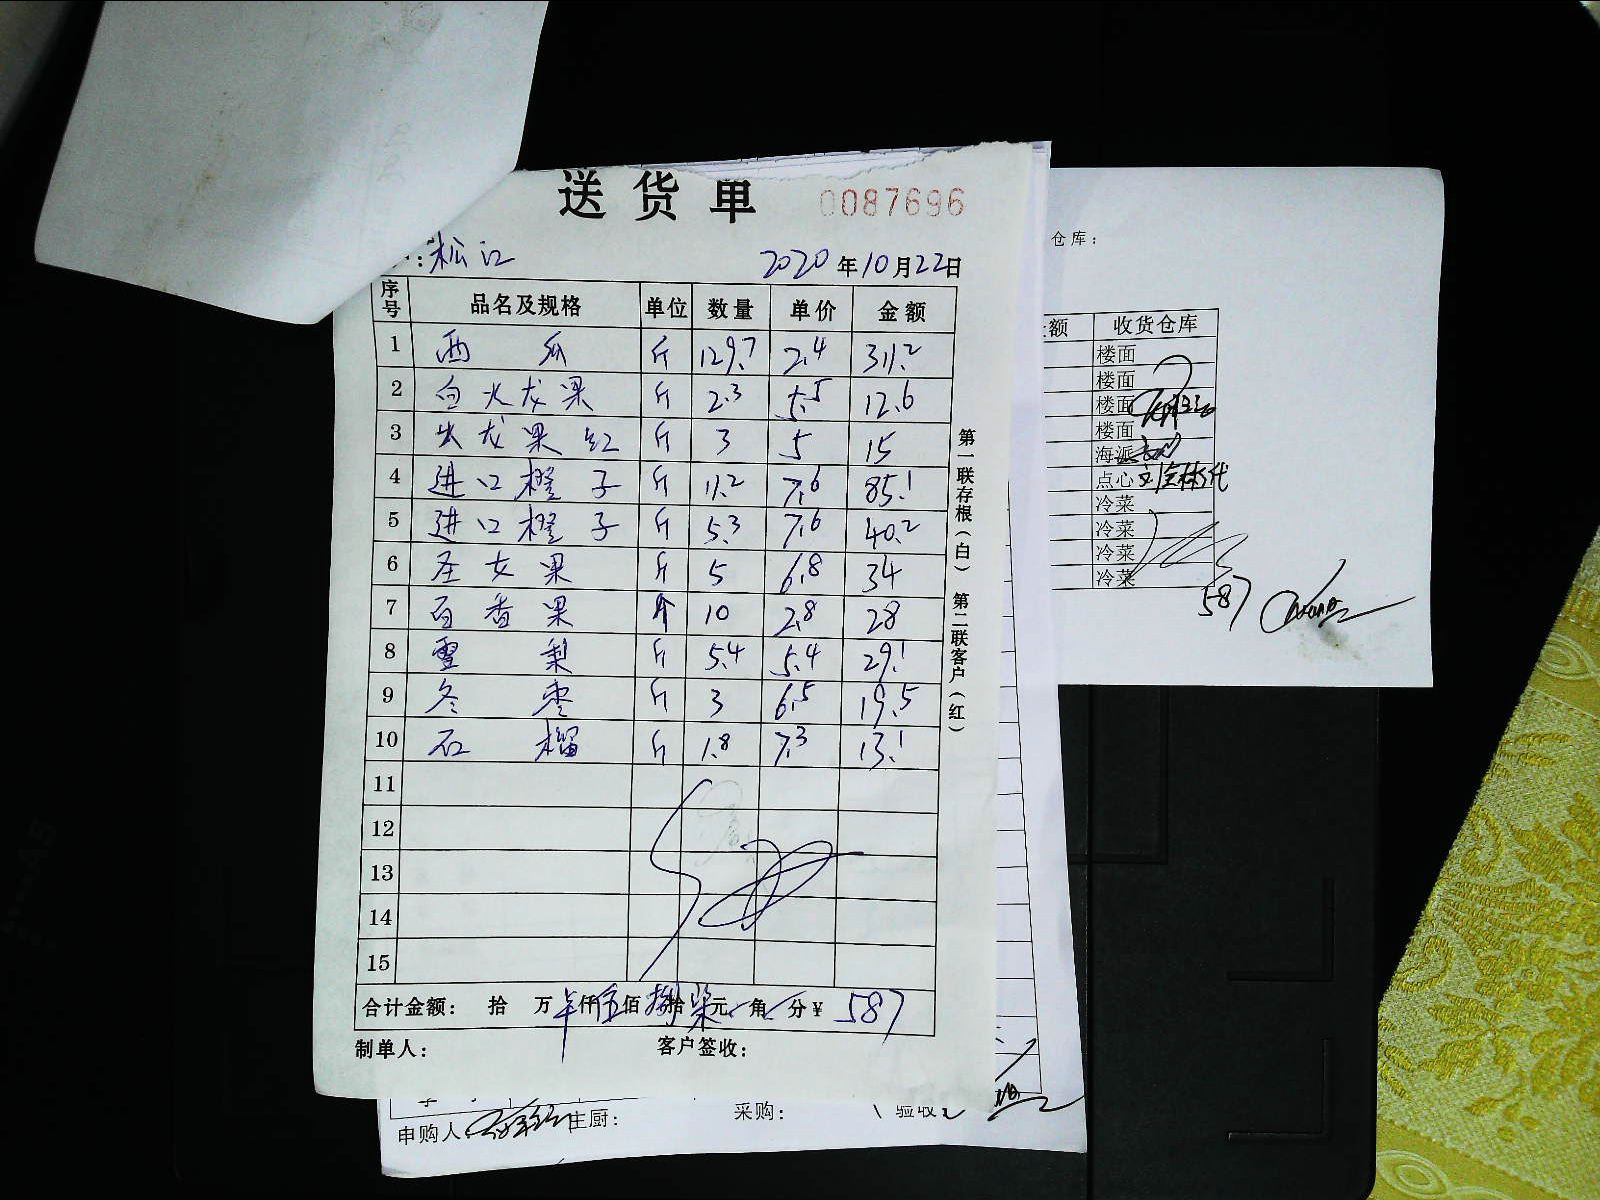 送货单 0087696
:松江 2020年10月22日
序号 品名及规格 单位 数量 单价 金额
1 西瓜 斤 129.7 2.4 311.2
2 白火龙果 斤 2.3 5.5 12.6
3 火龙果红 斤 3 5 15
4 进口橙子 斤 11.2 7.6 85.1
5 进口橙子 斤 5.3 7.6 40.2
6 圣女果 斤 5 6.8 34
7 百香果 个 10 2.8 28
8 雪梨 斤 5.4 5.4 29.1
9 冬枣 斤 3 6.5 19.5
10 石榴 斤 1.8 7.3 13.1
11
12
13
14
15
合计金额: 拾 万 仟伍佰捌拾柒元 角 分¥ 587
制单人: 客户签收:
第一联存根(白) 第二联客户(红)
申购人 主厨: 采购: 验收
仓库:
额 收货仓库
楼面
楼面
楼面
楼面
海派
点心
冷菜
冷菜
冷菜
冷菜
587